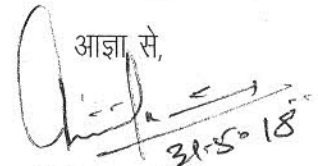 आज्ञा से,
31.5.18